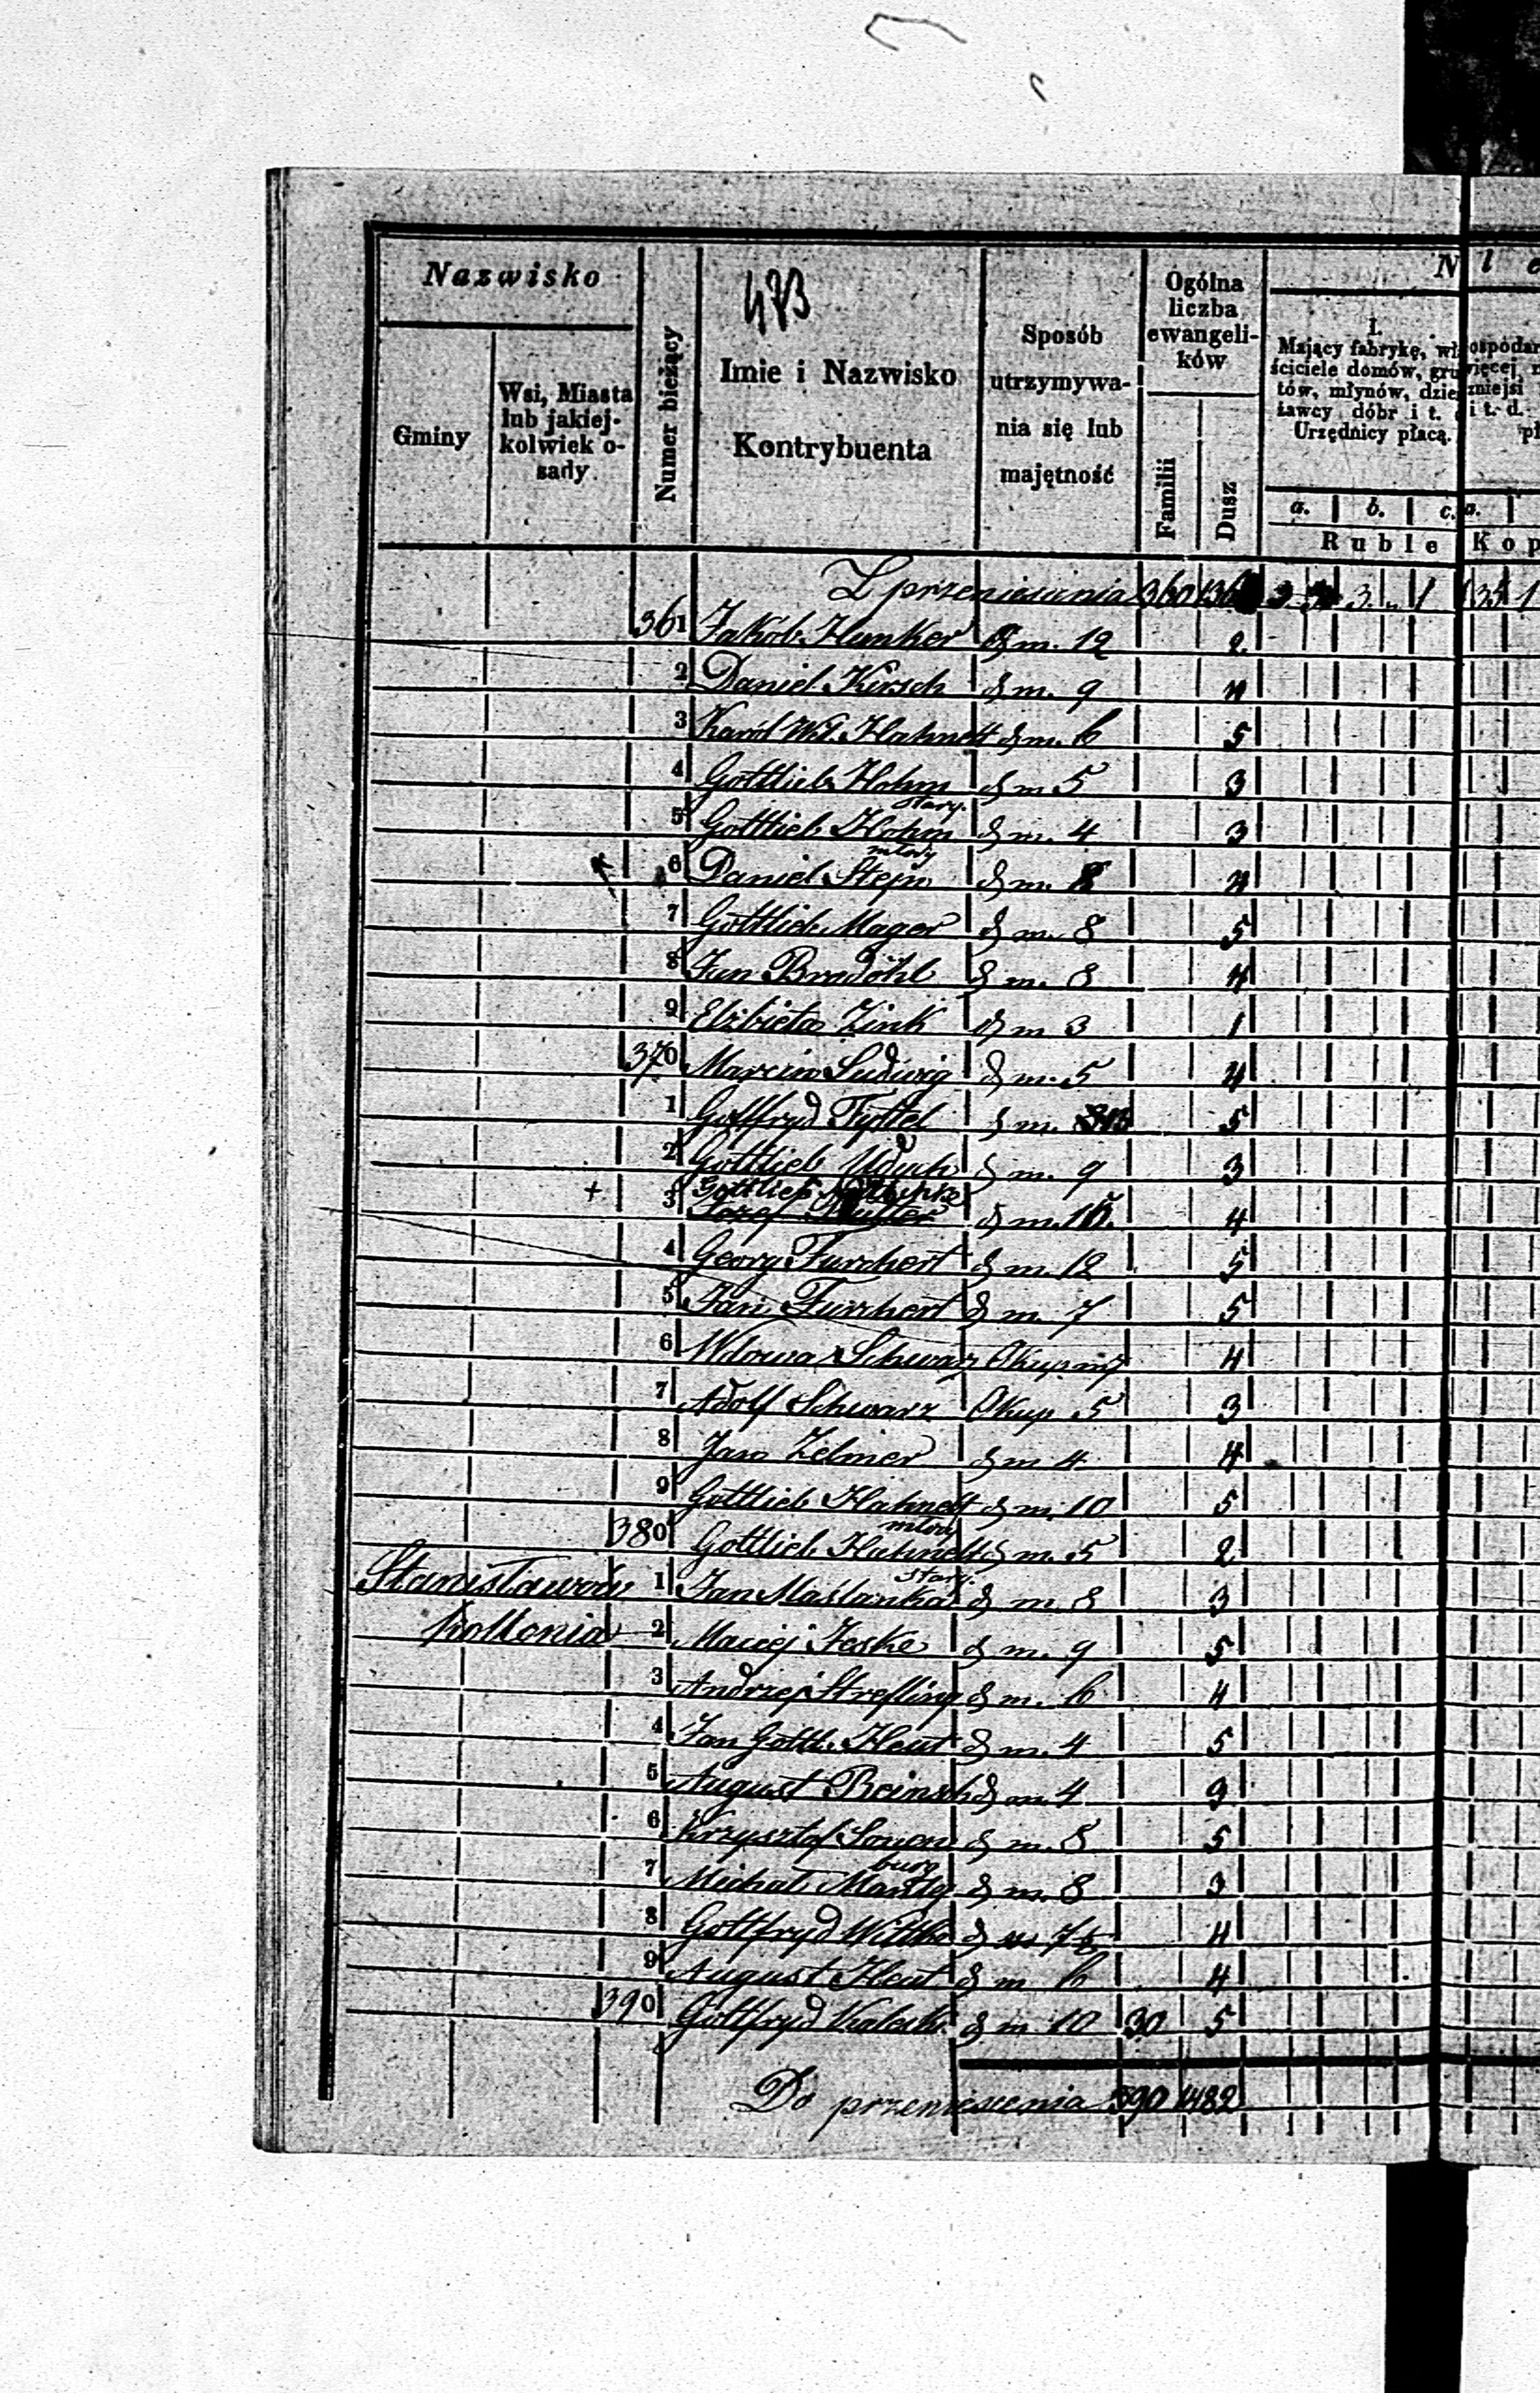 473
Nazwisko
Gminy
Wsi, Miasta lub jakiej- kolwiek o- sady
Numer bieżący
Imie i Nazwisko Kontrybuenta
Sposób utrzymywa- nia się lub majętność
Ogólna liczba ewangeli- ków
Familii
Dusz
N
I.
Mający fabrykę, wł
ściciele domów, gru
tów, młynów, dzier
ławcy dóbr i t.
Urzędnicy płacą.
a. b. c.
Ruble Kop
Z przeniesienia 360
361 Jakób Hunker m. 12 2
2 Daniel Kirsch m. 9 4
3 Karól Wil. Hahnelt m. 6 5
4 Gottlieb Hohm stary m 5 3
5 Gottlieb Hohm młody m. 4 3
6 Daniel Stejn m. 8 4
7 Gottlieb Mager m. 8 5
8 Jan Bradöhl m. 8 4
9 Elżbieta Zink m 3 1
370 Marcin Ludwig m. 5 4
1 Gottfryd Tyttel m. 5
2 Gottlieb m. 9 3
3 Gottlieb m. 4
4 Georg Furchert m. 12 5
5 Jan Furchert m. 7 5
6 Wdowa Schwarz Okup 4
7 Adolf Schwarz Okup 5 3
8 Jan Zelmer m 4 4
9 Gottlieb Hahnelt młody m. 10 5
380 Gottlieb Hahnelt stary m. 5 2
Stanisławów 1 Jan Maślanka m. 8 3
Kollonia 2 Maciej Jeske m. 9 5
3 Andrzej Strefling m. 6 4
4 Jan Gottl. Heut m. 4 5
5 August Beinsch m. 4
6 Krzysztof Sonen burg m. 8 5
7 Michał m. 8 3
8 Gottfryd Wittke 4
9 August Heut m 6 4
390 Gottfryd m 10 30 5
Do przeniesienia 390 1482